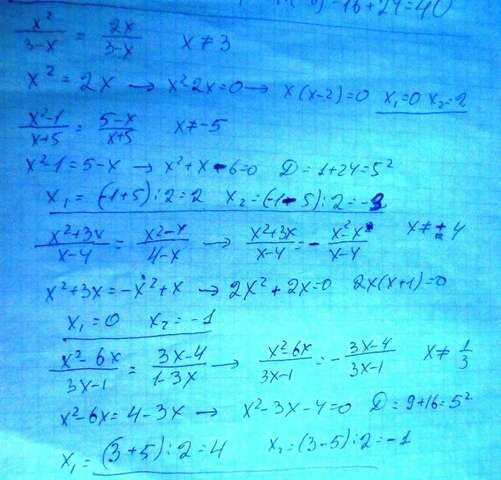 -16+24=40
x²/(3-x) = 2x/(3-x)   x≠3
x²=2x → x²-2x=0 → x(x-2)=0   x₁=0 x₂=2
(x²-1)/(x+5) = (5-x)/(x+5)   x≠-5
x²-1=5-x → x²+x-6=0   D=1+24=5²
x₁=(-1+5):2=2   x₂=(-1-5):2=-3
(x²+3x)/(x-4) = (x²-x)/(4-x) → (x²+3x)/(x-4) = -(x²-x)/(x-4)   x≠±4
x²+3x=-x²+x → 2x²+2x=0   2x(x+1)=0
x₁=0   x₂=-1
(x²-6x)/(3x-1) = (3x-4)/(1-3x) → (x²-6x)/(3x-1) = -(3x-4)/(3x-1)   x≠1/3
x²-6x=4-3x → x²-3x-4=0   D=9+16=5²
x₁=(3+5):2=4   x₂=(3-5):2=-1